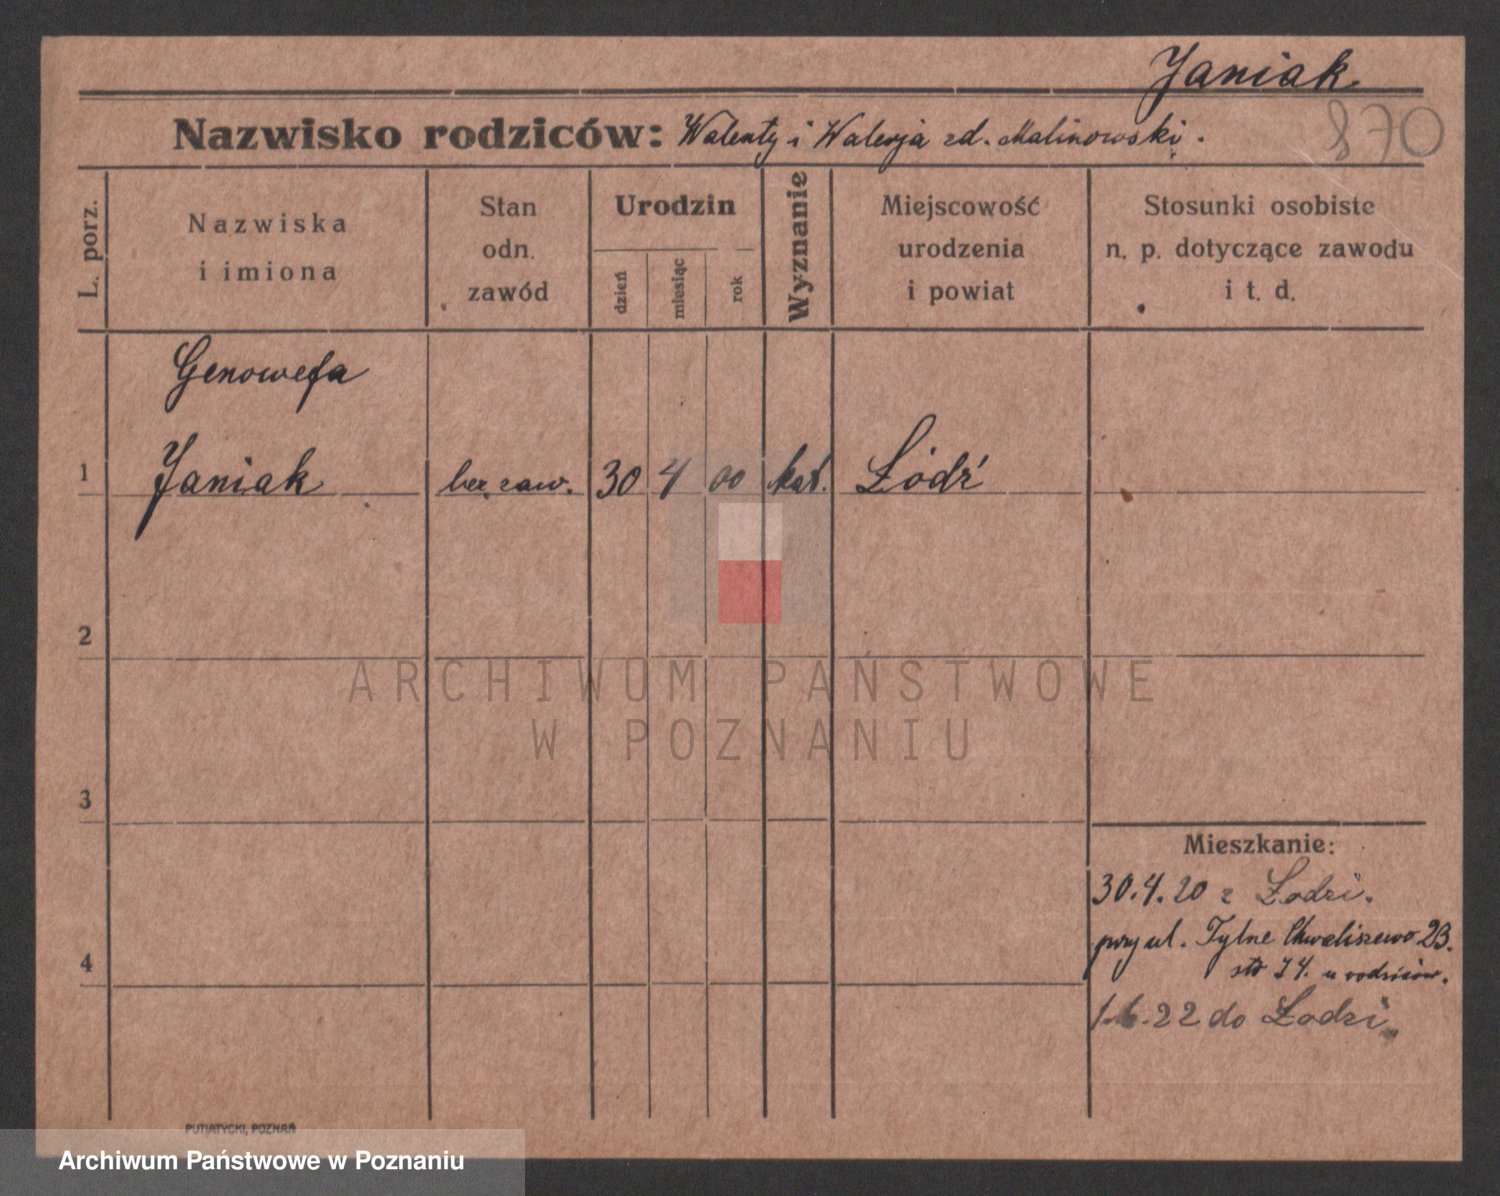 Janiak
Nazwisko rodziców: Walenty i Walerja zd. Malinowski.
870
L. porz.
Nazwiska
i imiona
Stan
odn.
zawód
Urodzin
dzień
miesiąc
rok
Wyznanie
Miejscowość
urodzenia
i powiat
Stosunki osobiste
n. p. dotyczące zawodu
i t. d.
Genowefa
1 Janiak bez zaw. 30 4 00 kat. Łódź
2
ARCHIWUM PAŃSTWOWE
W POZNANIU
3
Mieszkanie:
30.4.20 z Łodzi.
przy ul. Tylne Chwaliszewo 23.
4
u rodziców.
1.6.22 do Łodzi
PUTIATYCKI, POZNAŃ
Archiwum Państwowe w Poznaniu